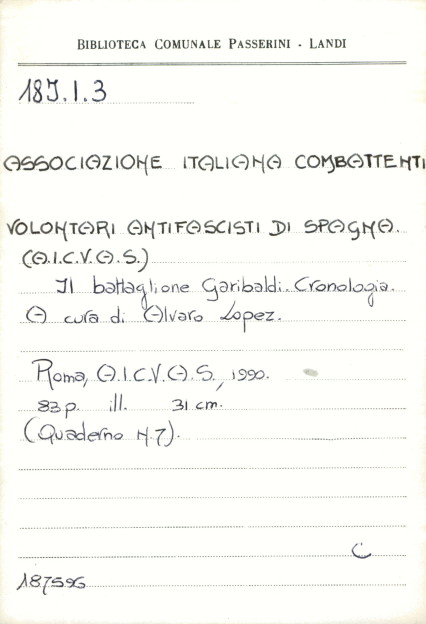 BIBLIOTECA COMUNALE PASSERINI - LANDI
18J.I.3
ASSOCIAZIONE ITALIANA COMBATTENTI
VOLONTARI ANTIFASCISTI DI SPAGNA.
(A.I.C.V.A.S.)
Il battaglione Garibaldi. Cronologia.
A cura di Alvaro Lopez.
Roma, A.I.C.V.A.S., 1990.
83 p. ill. 31 cm.
(Quaderno N.7).
C
187596